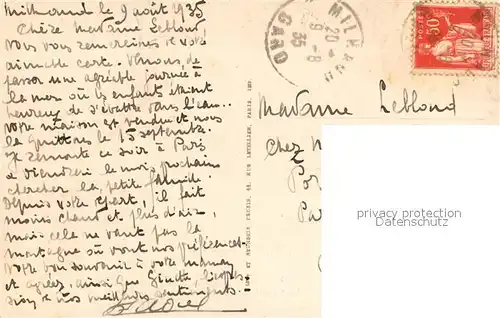 Milhaud le 9 août 1935
Chère Madame Leblond,
Nous vous remercions de votre
aimable carte. Venons de
passer une agréable journée à
la mer où les enfants étaient
heureux de s'ébattre dans l'eau..
Votre maison est vendue et nous
la quittons le 15 septembre.
Je remonte ce soir à Paris
et viendrai le mois prochain
chercher la petite famille.
Depuis votre départ, il fait
moins chaud et plus d'air,
mais cela ne vaut pas la
montagne où vont nos préférences
Votre bon souvenir à votre maman
et agréez, ainsi que Ginette, l'expres-
sion de nos meilleurs sentiments.
MILHAUD
20
9-8
35
GARD
50c
Madame Leblond
Chez M
Po
Pa
privacy protection
Datenschutz